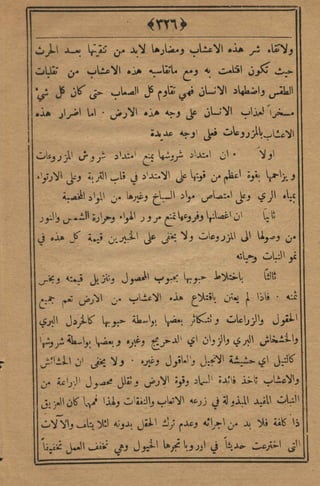 ﴿٣٢٦﴾
ولاتقاء شر هذه الاعشاب ومضارها لابد من تنقيتها بعد الحرث
حيث تكون اقتلعت به ومع ماتقاسيه هذه الاعشاب من تقلبات
الطقس واضطهاد الانسان فهي تقاوم كل الصعاب حتى كان كل شيء
مسخراً لعذاب الانسان على وجه هذه الارض ٠ اما اضرار هذه
الاعشاب بالمزروعات فعلى اوجه عديدة
اولاً ٠ ان امتداد شروشها يمنع امتداد شروش المزروعات
ويزاحمها بقوة اعظم من قوتها على الامتداد في قلب التربة وعلى الارتواء
بمياه الري وعلى امتصاص مواد السباخ وغيرها من المواد المخصبة
ثانياً ان اغصانها وفروعها تمنع مرور الهواء وحرارة الشمس والنور
من وصولها الى المزروعات ولا يخفى على الخبيرين قيمة كل هذه في
نمو النبات وحياته
ثالثاً باختلاط حبوبها بحبوب المحصول وتنزيل قيمته وبخس
ثمنه ٠ فاذا لم يعتن باقتلاع هذه الاعشاب من الارض تعم جميع
الحقول والزراعات وتتكاثر بعضها بواسطة حبوبها كالخردل البري
والخشخاش البري والزوان اي الدحريج وغيره وبعضها بواسطة شروشها
كالثيل اي حشيشة الانجيل والعاقول وغيره ٠ ولا يخفى ان الحشائش
والاعشاب تاخذ فائدة السماد وقوة الارض وتقلل محصول الزراعة من
النبات المفيد المبذولة في زرعه الاتعاب والنفقات ولهذا فمهما كان العزيق
ذا كلفة فلا بد من اجرائه وعدم ترك الحقل بدونه لئلا يتلف والآلات
التي اخترعت حديثاً في اوروبا تجرها الخيول وهي تخفف العمل تخفيفاً